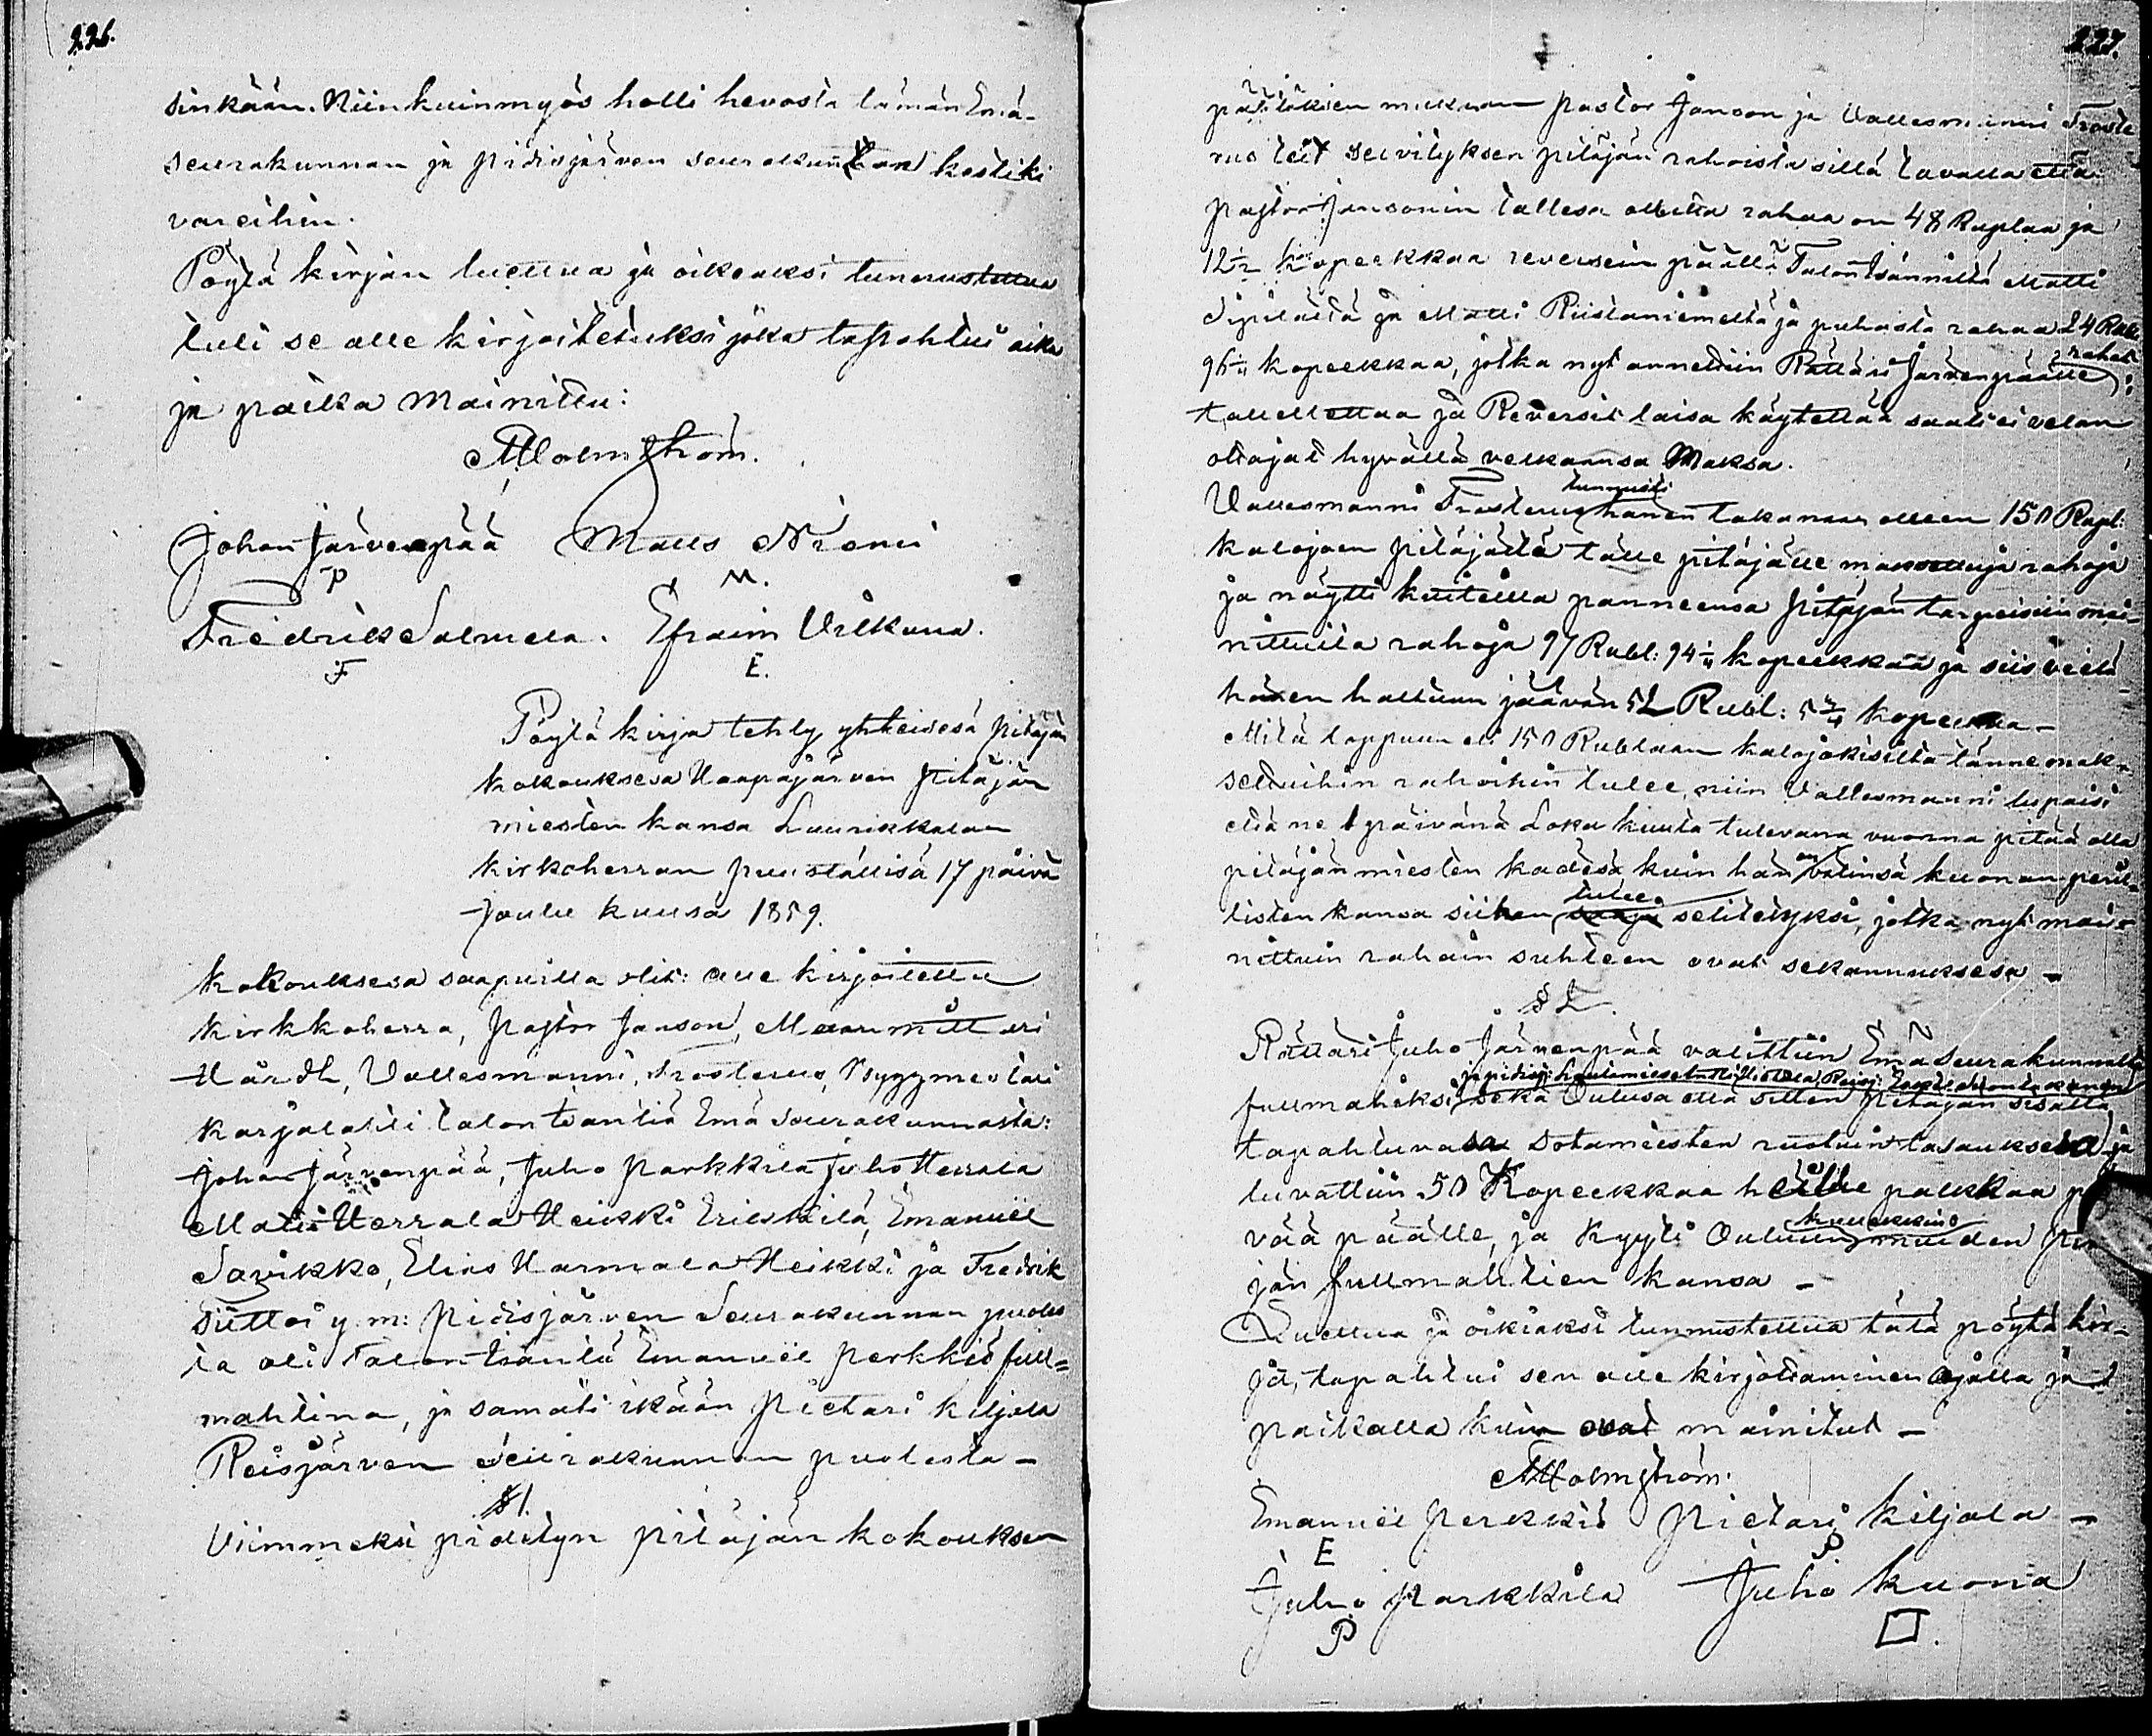 226.
sinkään. Niinkuinmyös holli hevosta tämän Emä-
seurakunnan ja pidisjärven seurakunnan kestiki
vareihin.
Pöytä kirjan luettua ja oikeaksi tunnustettua
tuli se alle kirjoitetuksi joka tapahtui aika
ja paikka mainittu:
A Holmström.
Johan Järvenpää Matts Niemi
P M.
Fredrik Salmela. Efraim Vilkuna.
F E.
Pöytä kirja tehty yhteisesä pitäjän
kokouksesa Haapajärven pitäjän
miesten kansa Laurikkalan
kirkoherran puuställisä 17 päivä
Joulu kuusa 1859.
kokouksesa saapuilla olit: alle kirjoitettu
kirkkoherra, pastor Janson, Maanmittari
Hårdh, Vallesmanni, Frosterus, Byggmestari
karjalahti talon isäntiä Emä seurakunnasta:
Johan Järvenpää, Juho parkkila Juho Herrala
Matti Herrala Heikki Erkkilä, Emanuel
Savikko, Elias Harmala Heikki ja Fredrik
Siitto y. m: pidisjärven Seurakunnan puoles
ta oli Talon Isäntä Emanuel perkkiö full=
mahtina, ja samati ikään pietari kiljala
Reisjärven Seurakunnan puolesta -
§ 1.
Viimmeksi pidetyn pitäjän kokouksen
227.
päätöksen mukaan pastor Janson ja Vallesmanni Froste
rus teit selvityksen pitäjän rahoista sillä tavalla että
pastor Jansonin tallesa olevita rahaa on 48 Ruplaa ja
12½ kopeekkaa reversein päällä Talon Isänniltä Matti
Sipilältä ja Matti Riistaniemeltä ja puhasta rahaa 24 Rubl:
96¼ kopeekkaa, jotka nyt annettiin Rättäri Järvenpäälle rahat:
talleltettaa ja Reversit laisa käytettää saati ei velan
ottajat hyvällä velkaansa Maksa.
Vallesmanni Frosterus tunnusti hänen takanaan olleen 150 Rupl:
kalajoen pitäjältä tälle pitäjälle maksettuja rahoja
ja näytti kuiteilla panneensa pitäjän tarpeisiin mai-
nittuita rahoja 97 Rubl: 94¼ kopeekkaa ja siis vielä
hänen haltuun jäävän 52 Rubl: 5¾ kopeekkaa -
Mitä loppuun eli 150 Rublaan kalajokisilta tänne mak-
settuihin rahoihin tulee, niin Vallesmanni lupaisi
että ne 1 päivänä Loka kuuta tulevana vuonna pitää olla
pitäjän miesten kädesä kuin hän on välinsä kuonan peril-
listen kansa siihen tulee selitetyksi, jotka nyt mai-
nittuin rahain suhteen ovat sekannuksesa -
§ 2.
Rättäri Juho Järvenpää valittiin Emä Seurakunnalta
fullmahiksi sekä Oulusa että sitten pitäjän sisällä
tapahtuvasa sotamiesten ruotuin tasauksesa ja
luvattiin 50 Kopeekkaa heille palkkaa
vää päälle, ja kyyti Ouluun muiden
jän fullmahtien kansa -
Luettua ja oikiaksi tunnustettua tätä pöytä kir-
ja, tapahtui sen alle kirjottaminen ajalla ja
paikalla kuin ovat mainitut -
A Holmström:
Emanuel perkkiö pietari kiljala -
E P
Juho parkkila Juho kuona
P □.